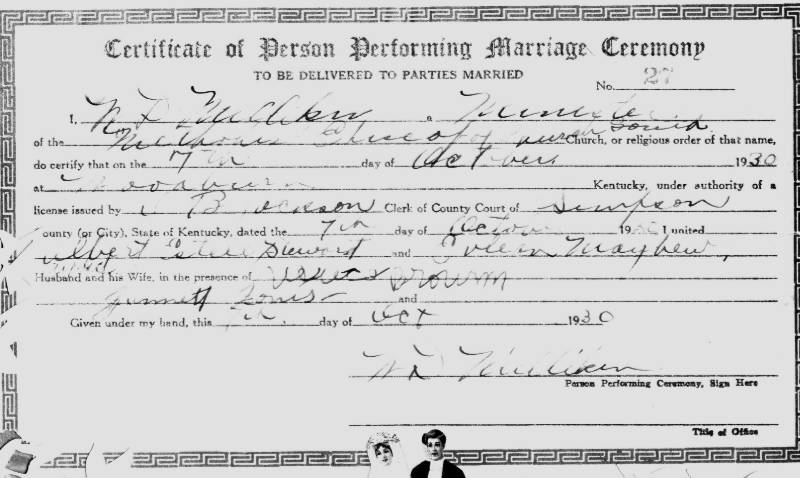 Certificate of Person Performing Marriage Ceremony
TO BE DELIVERED TO PARTIES MARRIED
No. 27
I, W. D. Milliken a Minister
of the Methodist Episcopal Church South Church, or religious order of that name,
do certify that on the 7th day of October 1930
at Woodburn Kentucky, under authority of a
license issued by B Jackson Clerk of County Court of Simpson
ounty (or City), State of Kentucky, dated the 7th day of October 19 I united
Albert Stewart and Mayhew,
Husband and his Wife, in the presence of Brown
Jones and
Given under my hand, this 7th. day of Oct 1930
W D Milliken
Person Performing Ceremony, Sign Here
Title of Office